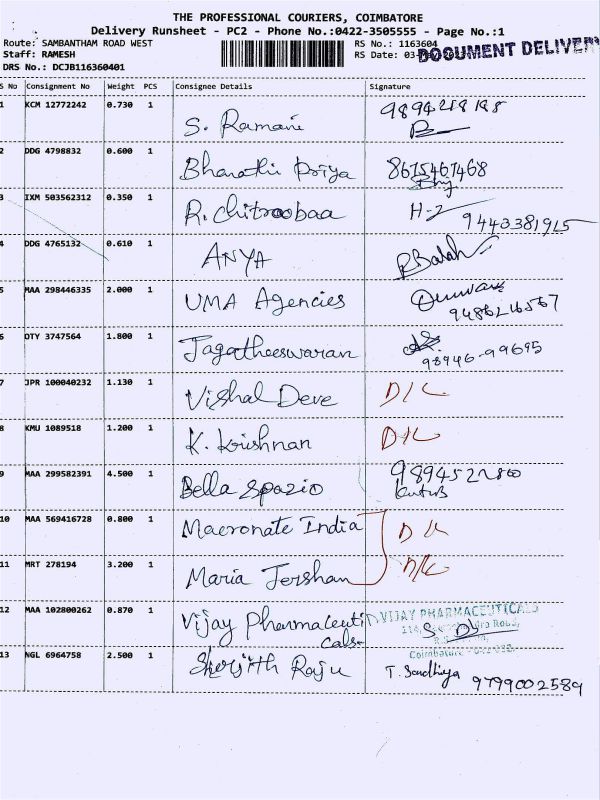 THE PROFESSIONAL COURIERS, COIMBATORE
Delivery Runsheet - PC2 - Phone No.:0422-3505555 - Page No.:1
Route: SAMBANTHAM ROAD WEST
RS No.: 1163604
DOCUMENT DELIVERY
Staff: RAMESH
RS Date: 03-
DRS No.: DCJB116360401
S No Consignment No Weight PCS Consignee Details Signature
1 KCM 12772242 0.730 1 S. Ramani
2 DDG 4798832 0.600 1 Bharathi Priya 8675467468
3 IXM 503562312 0.350 1 R. Chitroobaa 9443381915
4 DDG 4765132 0.610 1 ANYA R Balah
5 MAA 298446335 2.000 1 UMA Agencies 9486216567
6 OTY 3747564 1.800 1 Jagatheeswaran 98946-99695
7 JPR 100040232 1.130 1 Vishal Deve D/L
8 KMU 1089518 1.200 1 K. Krishnan D/L
9 MAA 299582391 4.500 1 Bella Spazio
10 MAA 569416728 0.800 1 Macronate India D/L
11 MRT 278194 3.200 1 Maria Jershan D/L
12 MAA 102800262 0.870 1 Vijay Pharmaceuticals VIJAY PHARMACEUTICALS
Coimbatore
13 NGL 6964758 2.500 1 Raju T. Sandhiya 9799002589